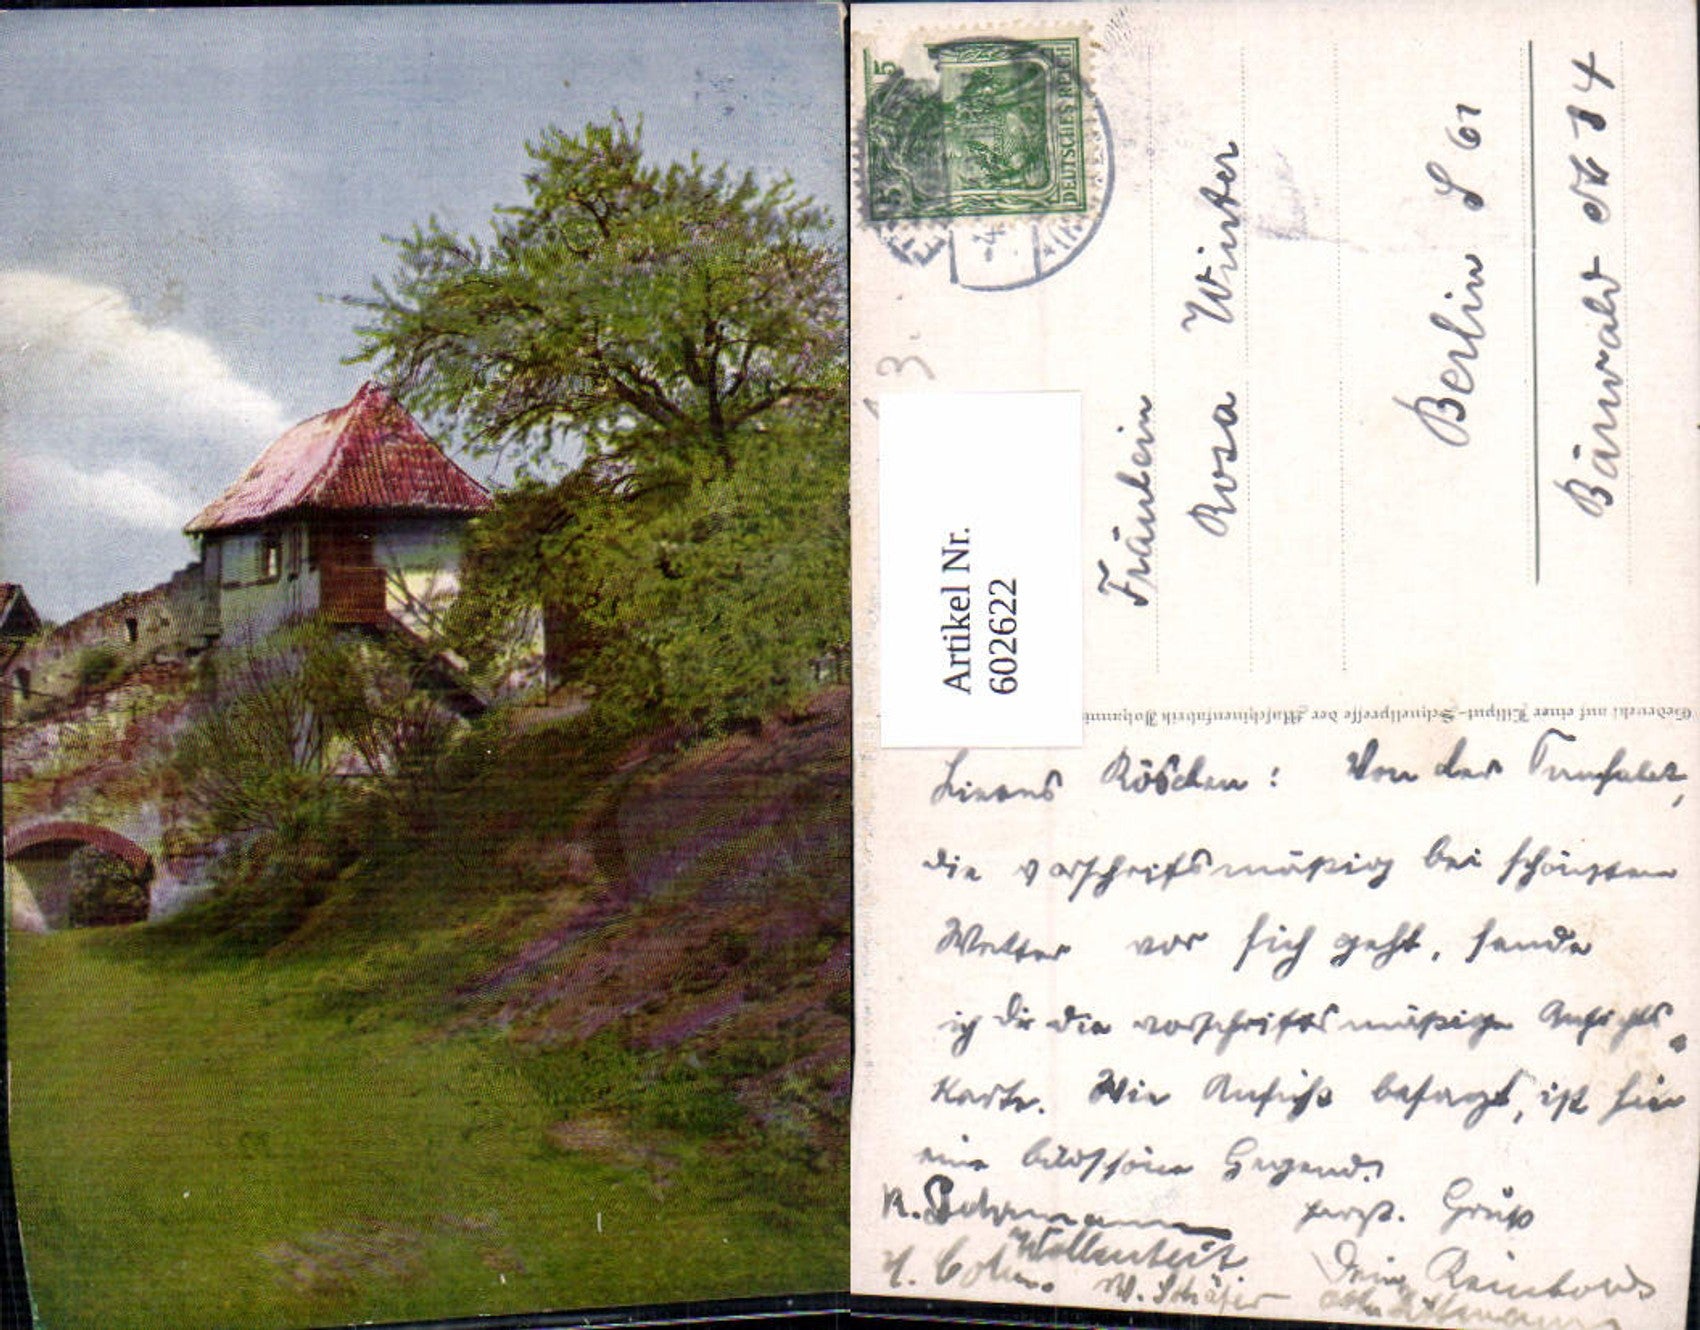 5
DEUTSCHES REICH
3.
Artikel Nr.
602622
Fräulein
Rosa Winter
Berlin S 61
Bärwald
Gedruckt auf einer Liliput-Schnellpresse der Maschinenfabrik Johannis
Liebes Röschen! Von der Turnfahrt,
die vorschriftsmäßig bei schönstem
Wetter vor sich geht, sende
ich Dir die vorschriftsmäßige Ansichts-
Karte. Wie Ansicht besagt, ist hier
eine bildschöne Gegend.
herzl. Gruß
Dein
W. Schäfer